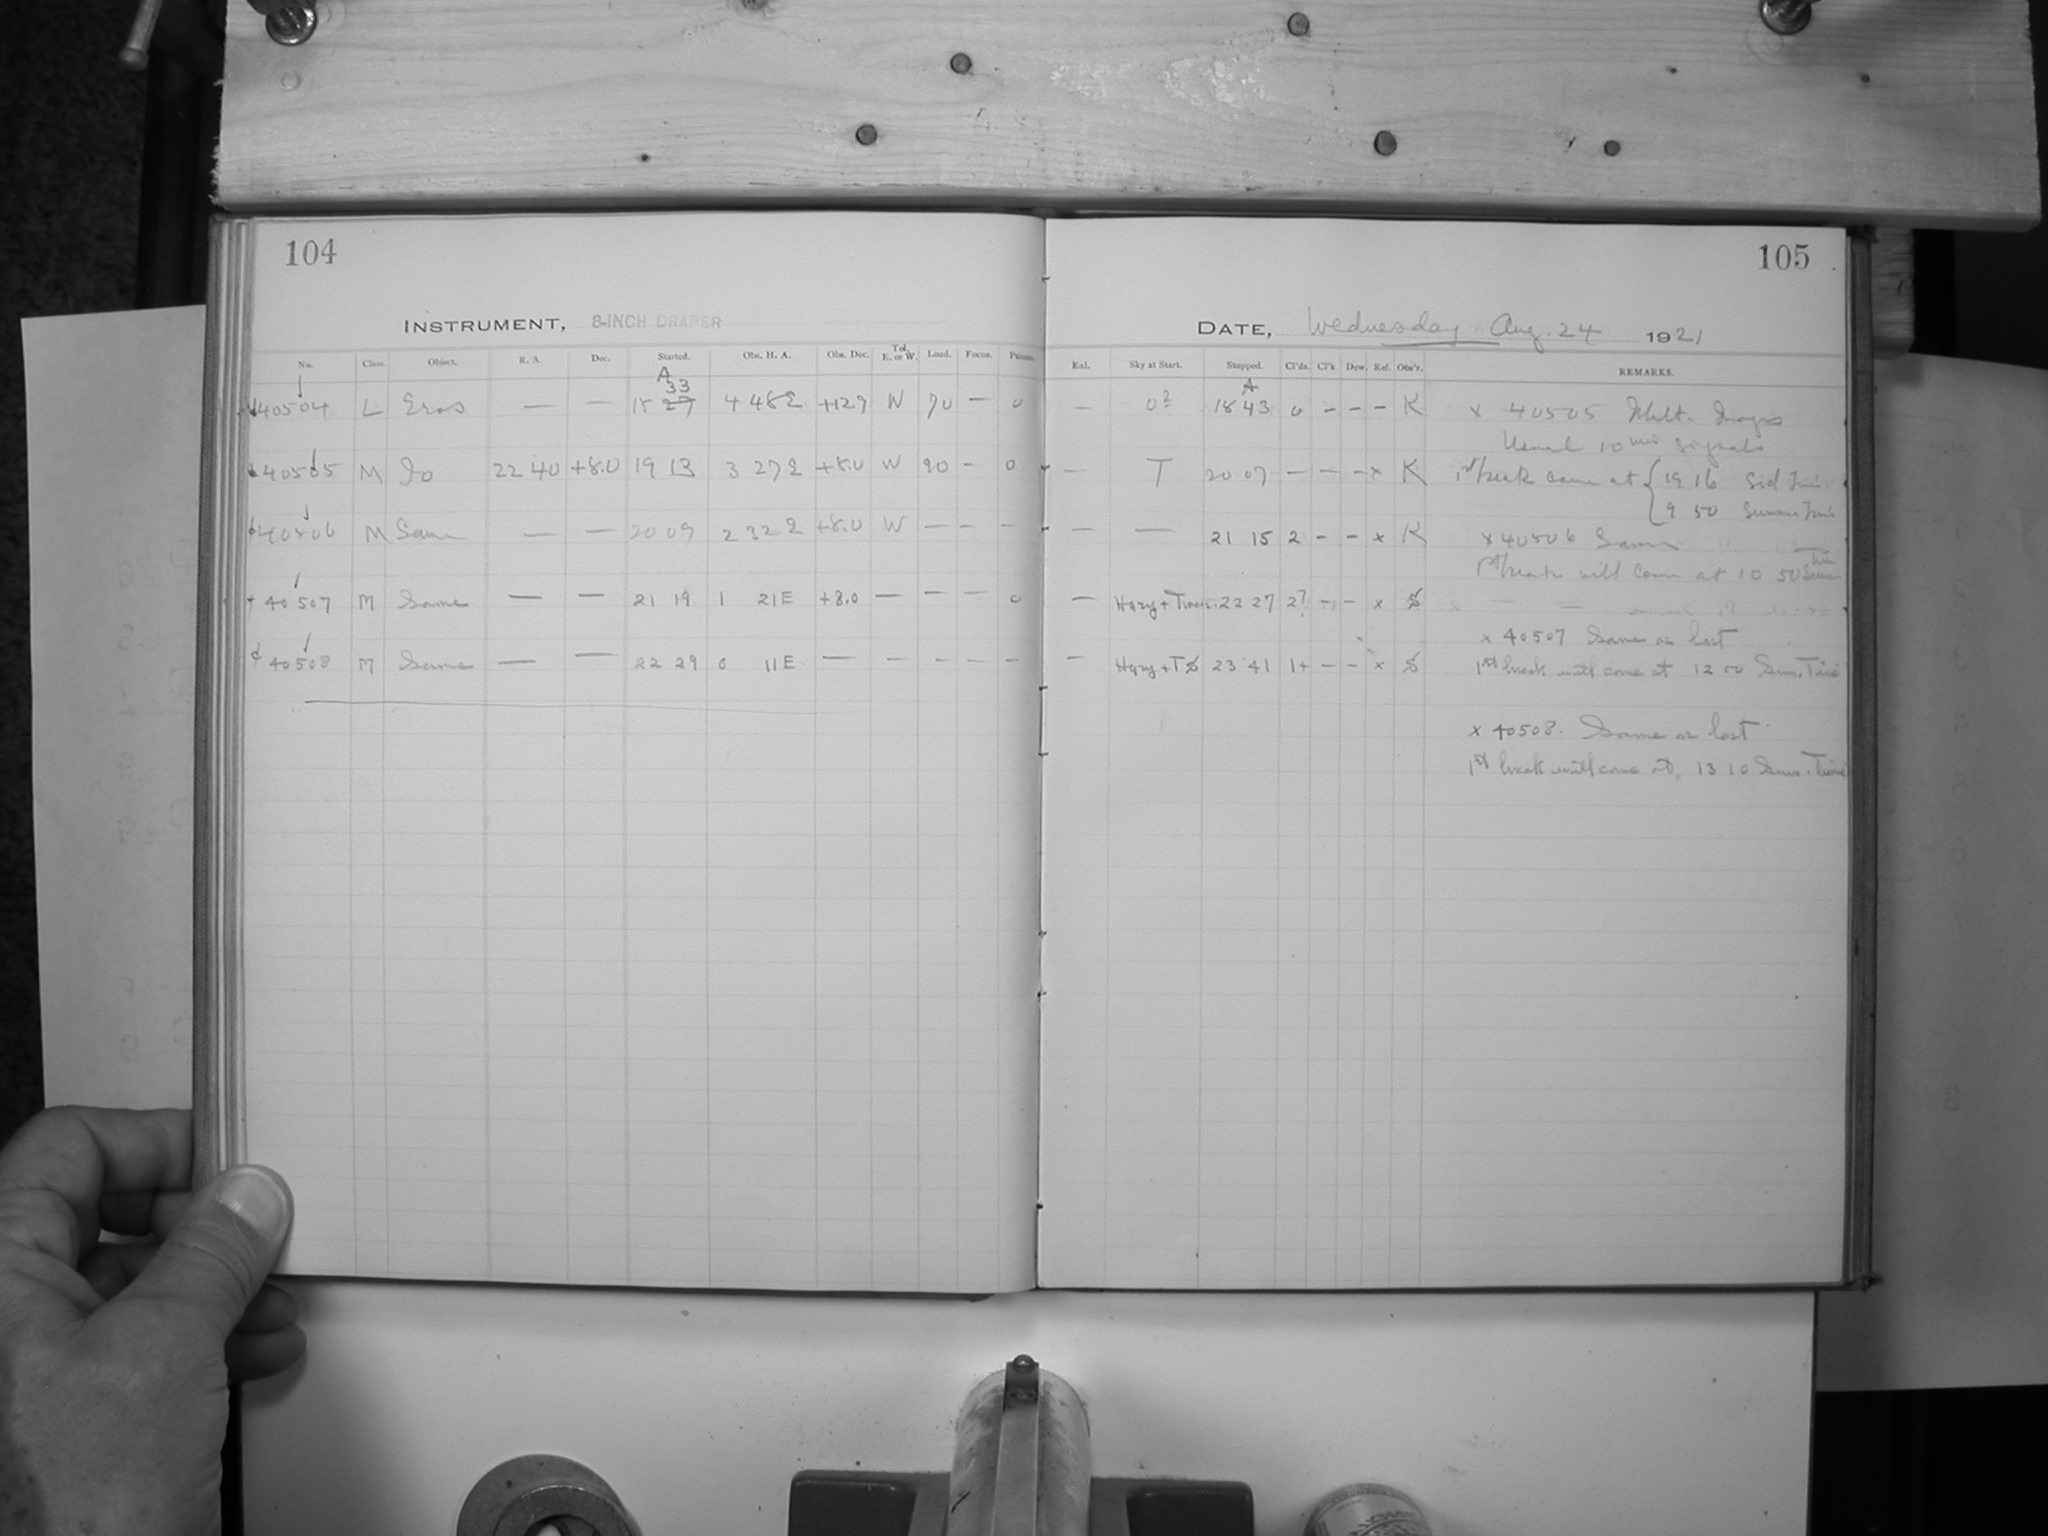 104
INSTRUMENT, 8-INCH DRAPER
No. Class. Object. R. A. Dec. Started. Obs. H. A. Obs. Dec. Tel. E. or W. Load. Focus.
A
33
40504 L Eros — — 27 4 48E +129 W 70 — 0
40505 M Do 22 40 +8.0 19 13 3 27E +8.0 W 90 - 0
40506 M Same — — 20 09 2 32E +8.0 W — - -
40507 M Same — — 21 19 1 21E +8.0 — - - 0
40508 M Same — — 22 29 0 11E — - - - -
105
DATE, Wednesday Aug. 24 1921
Sky at Start. Stopped. Cl'ds. Cl'k Dew. Ref. Obs'r. REMARKS.
A
— 0? 18 43 0 - - - K x 40505 Mult. Images
Usual 10 min signals
— T 20 07 — - - x K 1st break came at { 19 16 Sid Time
9 50 Summer Time
— — 21 15 2 - - x K x 40506 Same
1st break will come at 10 50 Summer Time
— Hazy + 22 27 2? - - x S
x 40507 Same as last
— Hazy + T S 23 41 1+ - - x S 1st break will come at 12 00 Sum. Time
x 40508. Same as last
1st break will come at 13 10 Sum. Time